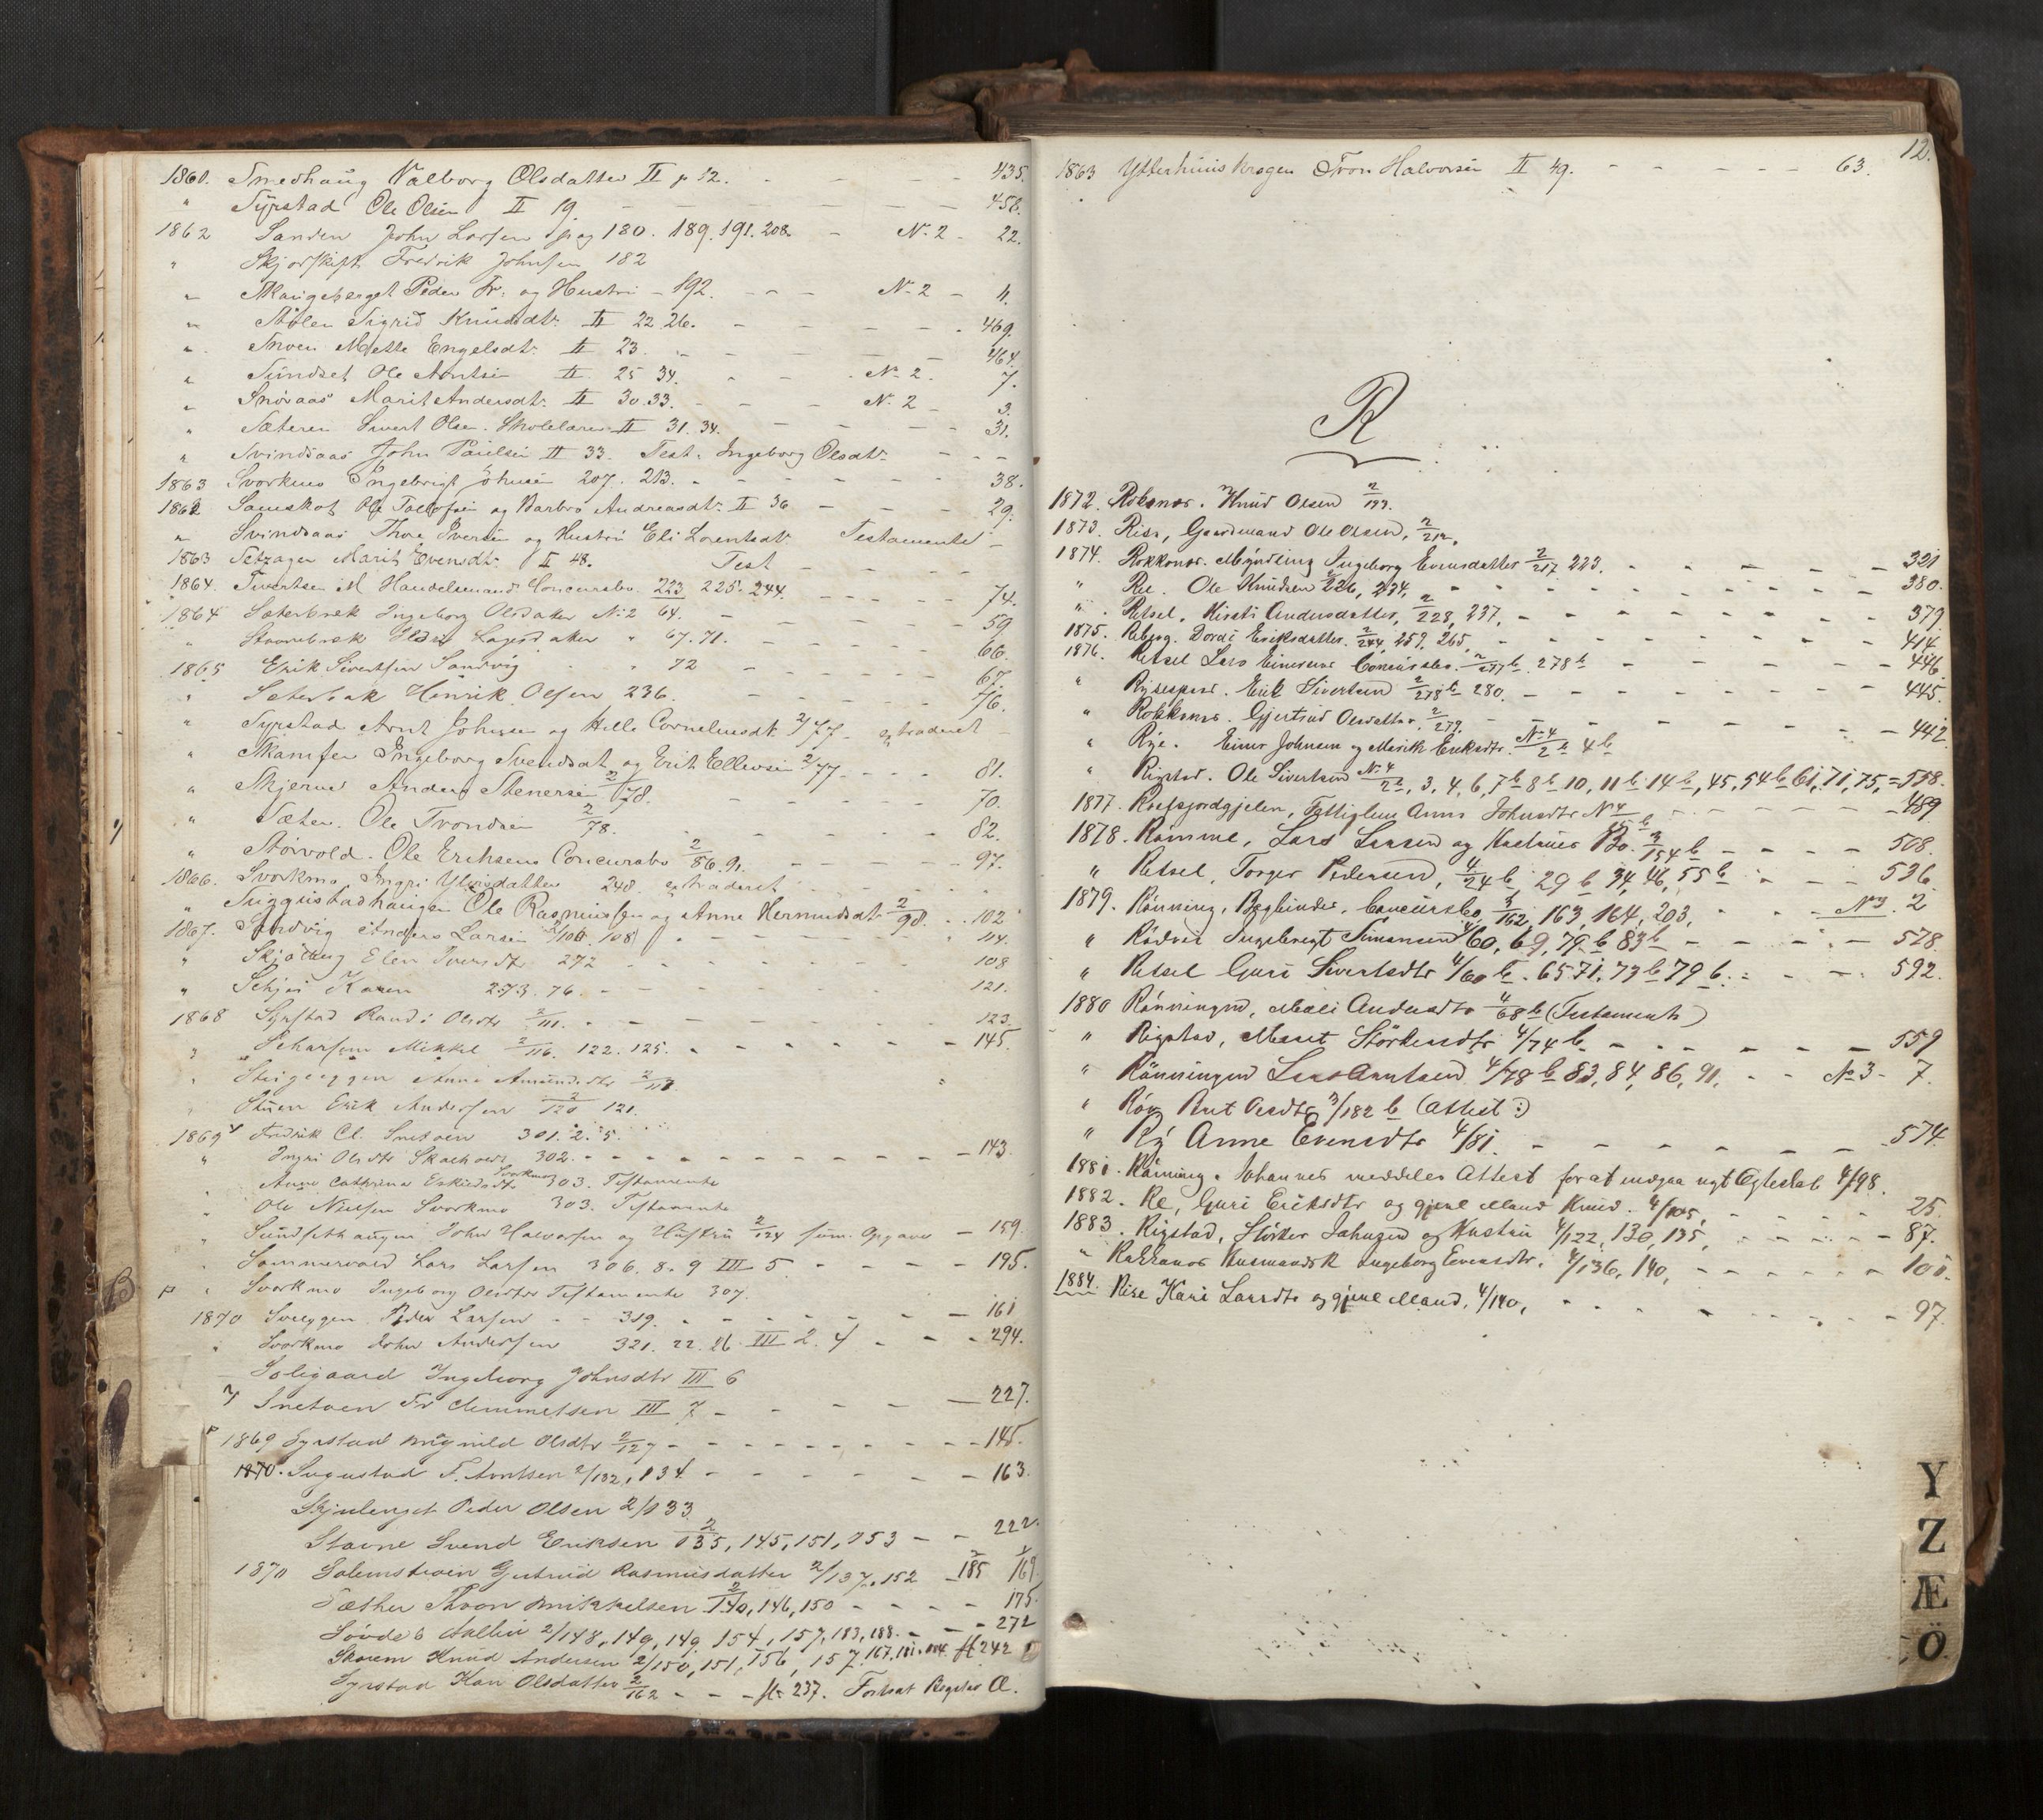 1861. Smedhaug Valborg Olsdatter II p 12. - - - - 435.
" Syrstad Ole Olsen II 19. - - - - 458.
1862 Sanden John Larsen pag 180. 189. 191. 208. - No 2 - 22.
" Fredrik Johnsen 182
" Skaugeberget Peder Fr: og Hustru - 192. - - - No 2 - 4.
" Stølen Sigrid Knudsdtr II 22 26. - - - - 469.
" Snoen Mette Engelsdt: II 23. - - - - 464.
" Sundset Ole Arntsen II 25 34. - - No 2. 7.
" Snøvaas Marit Andersdt: II 30.33. - - - No 2 - 3.
" Sæteren Sivert Olsen. Skolelærer II 31. 34. - - - - 31.
" Svindsaas John Paulsen II 33. Test: Ingeborg Olsdtr - - -
1863 Svorkmo Ingebrigt Johnsen 207. 213. - - - - - 38.
1862 Samskot Ole Tollofsen og Barbro Andreasdt: II 36 - - - 29.
" Svindsaas Thore Iversen og Hustru Eli Lorentsdt: Testamente -
1863 Setsager Marit Evensdt: II 48. Test - - - -
1864. Sivertsen M Handelsmand Concursbo. 223 225. 244. - - - - 74.
1864 Sæterbæk Ingeborg Olsdatter No 2 64. - - - - - 59
" Stavnebræk " 67. 71. - - - - - 66.
1865 Erik Sivertsen Sandvig " 72 - - - - - 67.
" Sæterbak Henrik Olsen 236. - - - - 76.
" Syrstad Arnt Johnsen og Hille Cornelius dt. 2/77 - extraderet -
" Skamfer Ingeborg Svendsdt og Erik Ellevsen 2/77 - - - - 81.
" Skjerve Anders Stenersen 2/78. - - - - - 70.
" Sæter. Ole Trondsen 2/78. - - - - - 82.
" Storvold. Ole Eriksens Concursbo 2/86.91. - - - - - 97.
1866. Svorkmo Ingri 248. extraderet - - - -
" Ole Rasmussen og Anne Hermundsdt. 2/98. - - 102
1867. Sandvig Anders Larsen 2/100. 108 - - - - - 114.
" Elen Iversdtr 272 - - - - - 108
" Karen 273. 76. - - - - - 121.
1868 Syrstad Randi Olsdtr 2/111. - - - - - 123.
" Mikkel 2/116. 122. 125. - - - - - 145.
" Anne Amundsdtr 2/118.
" Stuen Erik Andersen 2/120 121.
1869 Fredrik Cl. Snetoen 301. 2. 5.
" Ingri Olsdtr 302. - - - - - - - 143.
" Anne Cathrine Eriksdtr Svorkmo 303. Testamente
" Ole Nielsen Svorkmo 303. Testamente
" Sundsethaugen John Halvorsen og Hustru 2/124 sum. Opgave - 159.
" Sommervold Lars Larsen 306. 8. 9 III 5 - - - - - 195.
" Svorkmo Ingeborg Olsdtr Testamente 307.
1870 Sveeggen Peder Larsen - - 319. - - - - - 161
" Svorkmo John Andersen 321. 22. 26. III 2. 4 - - - 294.
Soligaard Ingeborg Johnsdtr III 6
Snetoen Fr Clemmetsen III 7 - - - - - 227.
1869 Syrstad Olsdtr 2/127 - - - - - - 145.
1870. Sugustad F. Arntsen 2/132, 134. - - - - - 163.
Peder Olsen 2/133.
Stavne Svend Eriksen 2/135, 145, 151, 153 - - 222.
1870 Gjertrud Rasmusdatter 2/137, 152 - 185 169
Sæther Thron Mikkelsen 2/140, 146, 150 - - - - 175.
2/148, 149, 149. 154, 157, 183, 188. - - - 272
Skarem Knud Andersen 2/150, 151, 156, 157. 167, 181. 184. fl. 242
Syrstad Kari Olsdatter 2/162 - - - fl. 237. Fortsat Register Æ.
12.
1863 Ytterhuus Krogen Tron Halvorsen II 49. - - - - - 63.
R
1872. Roksnos. Knud Olsen 2/193.
1873. Rise, Gaardmand Ole Olsen, 2/212.
1874. Rokkonos. Myndling Ingeborg Evensdatter 2/217 223. - - - - - 321
" Ree. Ole Knudsen 2/226, 234. - - - - - - 380.
" Retsel. Kirsti Andersdatter, 2/228, 237, - - - - - 379
1875. Reberg. Dordi Eriksdatter. 2/244, 259, 265, - - - - - 414
1876. Retsel Lars Einersens Concursbo. 2/277 b. 278 b - - - - 446.
" Erik Sivertsen 2/278 b 280. - - - - - 445.
" Rokkonos. Gjertrud Olsdatter. 2/279. - - - - - 442.
" Rye. Einer Johnsen og Marit Eriksdtr. No 4/2 b 4 b
" Rigstad. Ole Sivertsen No 4/2 b, 3, 4, 6, 7 b 8 b 10, 11 b 14 b, 45, 54 b 61, 71, 75, = 558.
1877. Fattiglem Anne Johnsdtr No 4/15 b - - - - 489
1878. Rømme, Lars Larsen og Hustrues Bo. 3/154 b - - - - 508.
" Retsel, Torger Pedersen, 4/24 b, 29 b 34, 46, 55 b - - - 536.
1879. Rønning, Begbinder, Concursbo, 3/162, 163, 164, 203, - - - No 3. 2
" Ingebregt Simonsen 4/60, 69, 79 b 83 b - - - - 578.
" Retsel Guri Sivertsdtr 4/60 b. 65 71, 73 b 79 b. - - - 592.
1880 Rønningen, Mali Andersdtr 4/68 b (Testament)
" Rigstad, Marit Størkersdtr 4/74 b - - - - - - 559
" Rønningen Lars Arntsen 4/78 b 83, 84, 86, 91, - - No 3 - 7.
" Olsdtr 3/182 b (Attest:)
" Ry Anne Evensdtr 4/81. - - - - - - 574.
1881. Rønning. Johannes meddeles Attest for at indgaa nyt Ægteskab 4/98.
1882. Re, Guri Eriksdtr og gjenl Mand Knud. 4/105, - - - - - 25.
1883. Rigstad, Størker Johnsen og Hustru 4/122, 130, 135, - - - - - 87.
" Rokkonos Husmandsk Ingeborg Evensdtr. 4/136, 140, - - - - - 101.
1884. Rise Kari Larsdtr og gjenl Mand, 4/140, - - - - - 97.
Y
Z
Æ
Ö